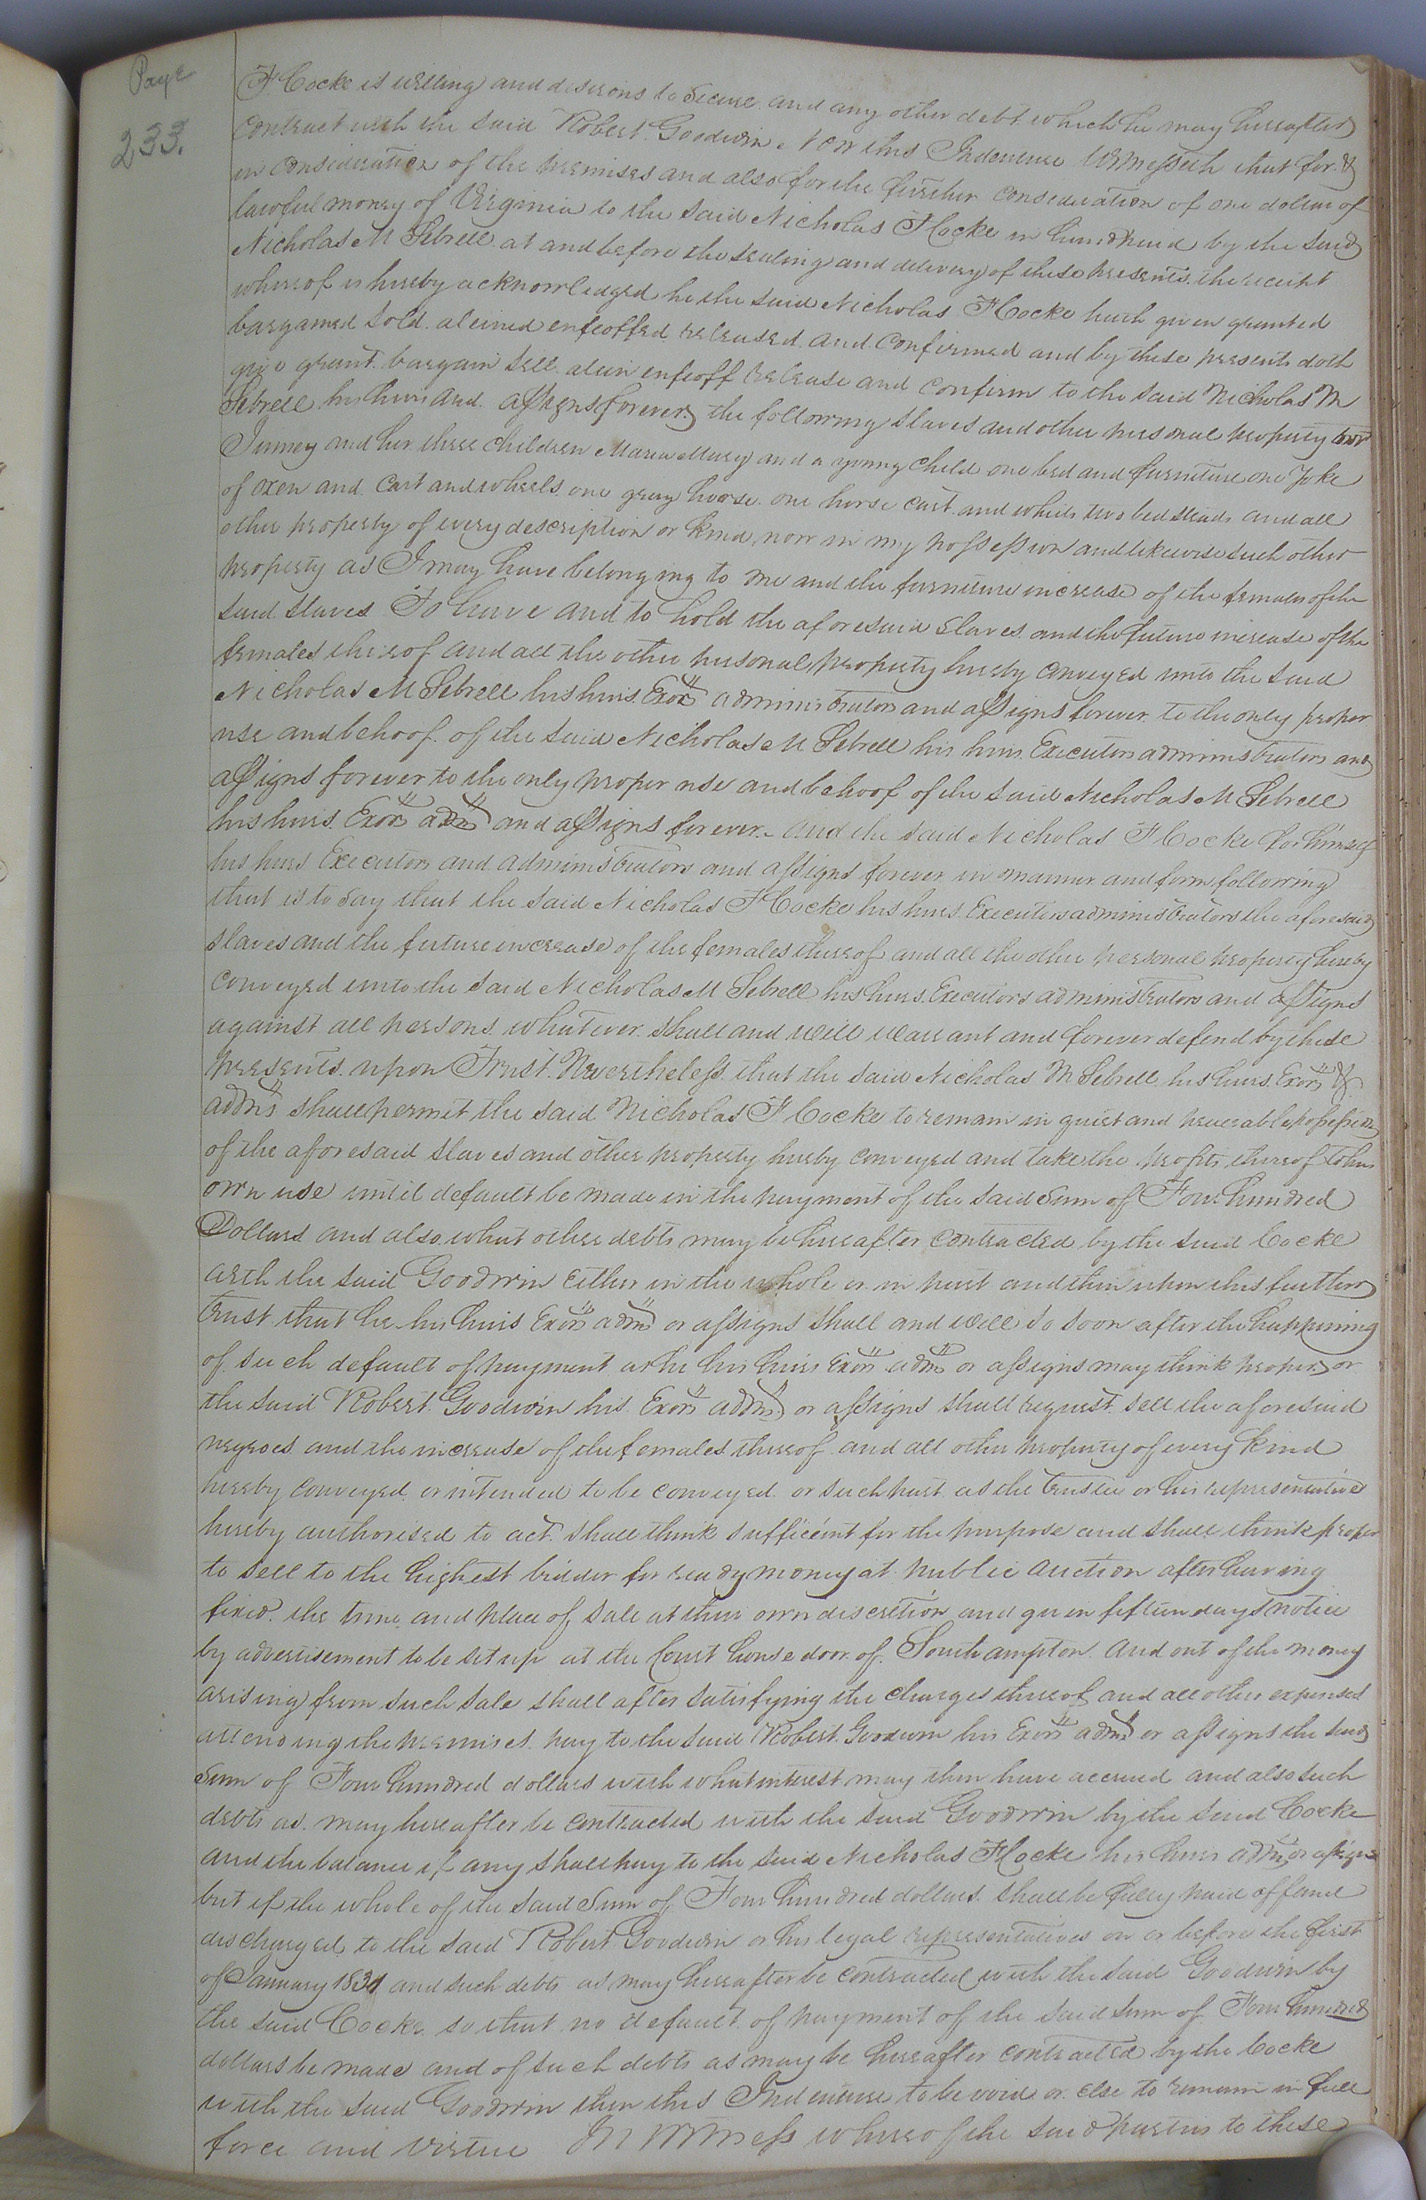 Page
233.
F Cocke is willing and desirous to secure and any other debt which he may hereafter
contract with the said Robert Goodwin Now this Indenture Witnesseth that for &
in consideration of the premises and also for the further consideration of one dollar of
lawful money of Virginia to the said Nicholas F Cocke in hand paid by the said
Nicholas M Sebrell at and before the sealing and delivery of these presents the receipt
whereof is hereby acknowledged he the said Nicholas F Cocke hath given granted
bargained sold aleined enfeoffed released and confirmed and by these presents doth
give grant bargain sell alein enfeoff release and confirm to the said Nicholas M
Sebrell his heirs and assigns forever the following slaves and other personal property
Jinney and her three children Maria Mary and a young child one bed and furniture one Yoke
of oxen and cart and wheels one gray horse one horse cart and wheels two bed steads and all
other property of every description or kind now in my possession and likewise such other
property as I may have belonging to me and the furniture increase of the females of the
said slaves To have and to hold the aforesaid slaves and the future increase of the
females thereof and all the other personal property hereby conveyed unto the said
Nicholas M Sebrell his heirs Exors administrators and assigns forever to the only proper
use and behoof of the said Nicholas M Sebrell his heirs Executors administrators and
assigns forever to the only proper use and behoof of the said Nicholas M Sebrell
his heirs Exors adms and assigns forever. And the said Nicholas F Cocke for himself
his heirs Executors and administrators and assigns forever in manner and form following
that is to say that the said Nicholas F Cocke his heirs Executors administrators the aforesaid
slaves and the future increase of the females thereof and all the other personal property hereby
conveyed unto the said Nicholas M Sebrell his heirs Executors administrators and assigns
against all persons whatever shall and will warrant and forever defend by these
presents upon Trust Nevertheless that the said Nicholas M Sebrell his heirs Exors &
admrs shall permit the said Nicholas F Cocke to remain in quiet and peaceable possession
of the aforesaid slaves and other property hereby conveyed and take the profits thereof to his
own use until default be made in the payment of the said Sum of Four hundred
Dollars and also what other debts may be hereafter contracted by the said Cocke
with the said Goodwin either in the whole or in part and then upon this further
trust that he his heirs Exors adms or assigns shall and will so soon after the happening
of such default of payment as he his heirs Exors adms or assigns may think proper or
the said Robert Goodwin his Exors adms or assigns shall request sell the aforesaid
negroes and the increase of the females thereof and all other property of every kind
hereby conveyed or intended to be conveyed or such part as the trustee or his representative
hereby authorised to act shall think sufficient for the purpose and shall think proper
to sell to the highest bidder for ready money at public auction after having
fixed the time and place of sale at their own discretion and given fifteen days notice
by advertisement to be set up at the Court house door of Southampton and out of the money
arising from such sale shall after satisfying the charges thereof and all other expenses
attending the premises pay to the said Robert Goodwin his Exors adms or assigns the said
Sum of Four hundred dollars with what interest may then have accrued and also such
debts as may hereafter be contracted with the said Goodwin by the said Cocke
and the balance if any shall pay to the said Nicholas F Cocke his heirs adms or assigns
but if the whole of the said Sum of Four hundred dollars shall be fully paid off and
discharged to the said Robert Goodwin or his legal representatives on or before the first
of January 1831 and such debts as may hereafter be contracted with the said Goodwin by
the said Cocke so that no default of payment of the said sum of Four hundred
dollars be made and of such debts as may be hereafter contracted by the Cocke
with the said Goodwin then this Indenture to be void or else to remain in full
force and virtue In Witness whereof the said parties to these